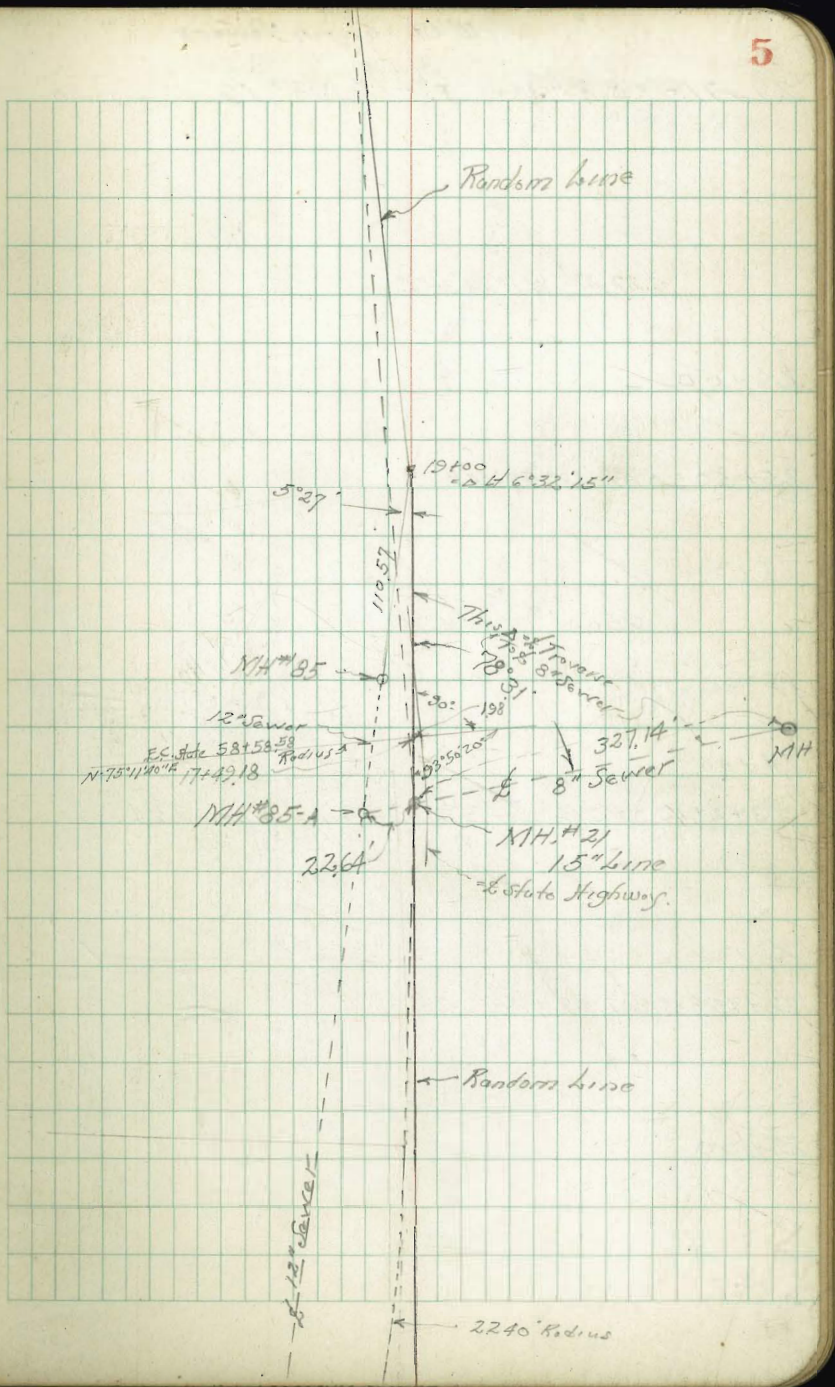 5
Random Line
19+00
6°32'15"
5°27'
110.57
This
Traverse
8" Sewer
78°31'
MH#85
90°
1.98
12" Sewer
E.C. State 58+58.58
Radius
N-75°11'40"E 17+49.18
327.14'
MH
93°56'20"
℄ 8" Sewer
MH#85-A
MH.#21
15" Line
22.64'
℄ State Highway.
Random Line
℄ 12" Sewer
2240' Radius